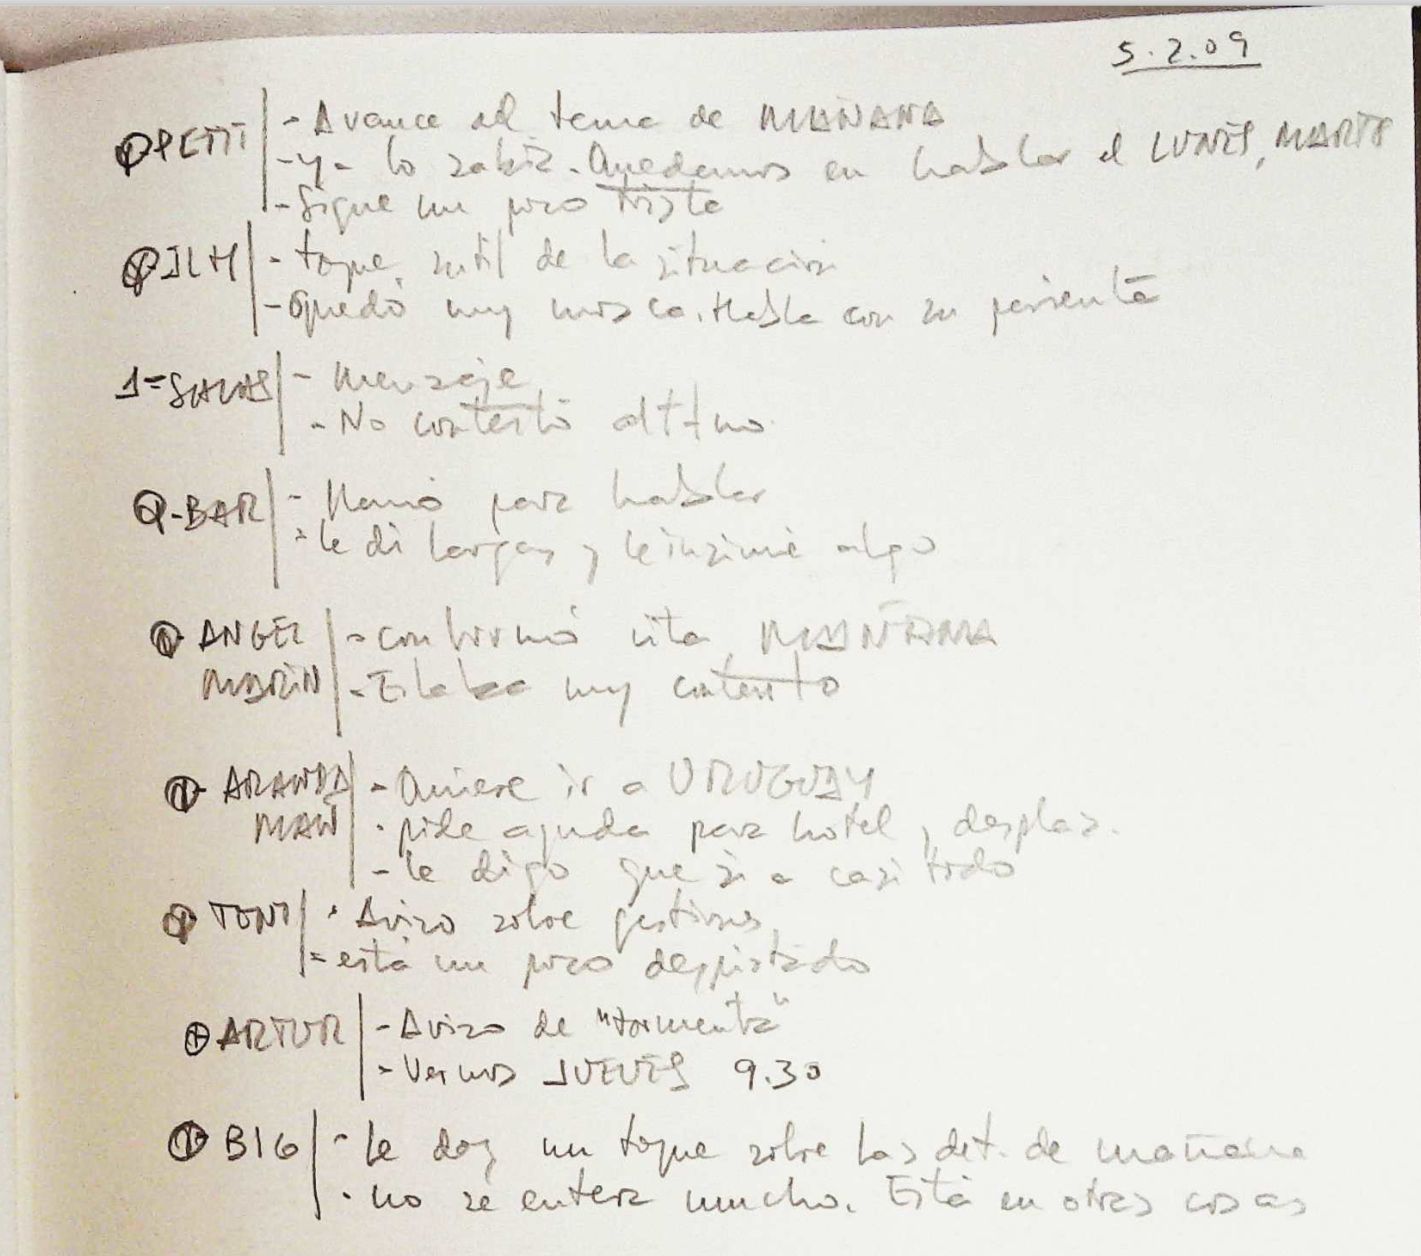 5.2.09
PETIT - Avance del tema de MAÑANA
- ya lo sabía. Quedamos en hablar el LUNES, MARTES
- Sigue un poco triste
ILM - toque sutil de la situación
- Quedó muy mosca. Habla con su parienta
1= SALAS - Mensaje
- No contestó al tfno.
BAR - Llamó para hablar
- le di largas y le insinué algo
ANGEL - confirmó cita MAÑANA
MARIN - Estaba muy contento
ARANDA - Quiere ir a URUGUAY
- pide ayuda para hotel y desplaz.
- le digo que sí a casi todo
TONI - Aviso sobre gestiones
= está un poco despistado
ARTUR - Aviso de "tormenta"
- Vernos JUEVES 9.30
BIG - le doy un toque sobre las det. de mañana
- no se entera mucho. Está en otras cosas